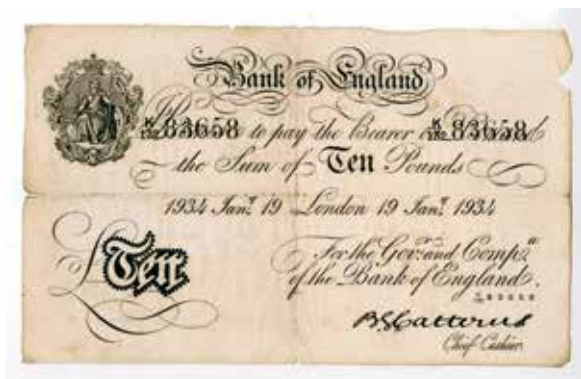 Bank of England
83658 to pay the Bearer 83658
the Sum of Ten Pounds
1934 Jany. 19 London 19 Jany. 1934
£Ten
For the Govr. and Compa.
of the Bank of England.
B.G. Catterns
Chief Cashier.